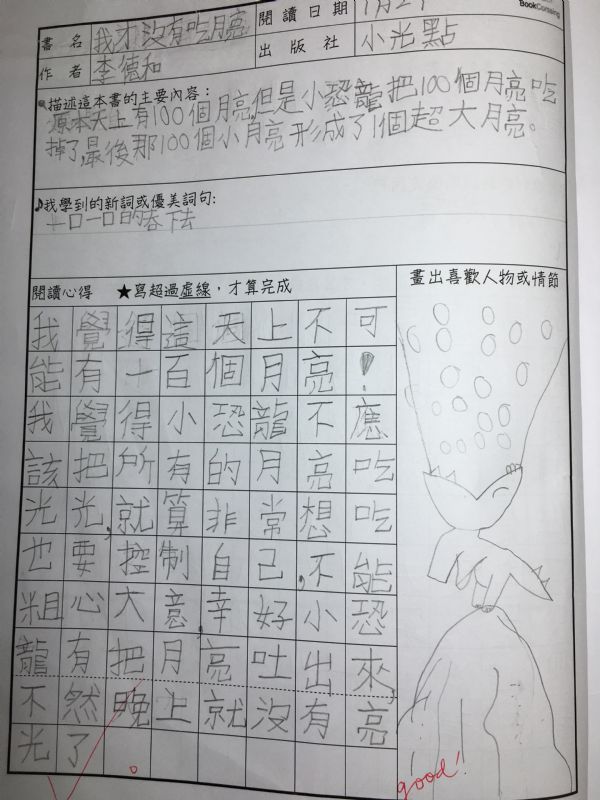 BookConsing
書名 我才沒有吃月亮 閱讀日期 1月29
作者 李德和 出版社 小光點
描述這本書的主要內容：
原本天上有100個月亮,但是小恐龍把100個月亮吃
掉了,最後那100個小月亮形成了1個超大月亮。
♪我學到的新詞或優美詞句:
一口一口的吞下去
閱讀心得 ★寫超過虛線，才算完成
畫出喜歡人物或情節
我覺得這天上不可
能有一百個月亮!
我覺得小恐龍不應
該把所有的月亮吃
光光,就算非常想吃
也要控制自己,不能
粗心大意,幸好小恐
龍有把月亮吐出來,
不然晚上就沒有亮
光了。
good!